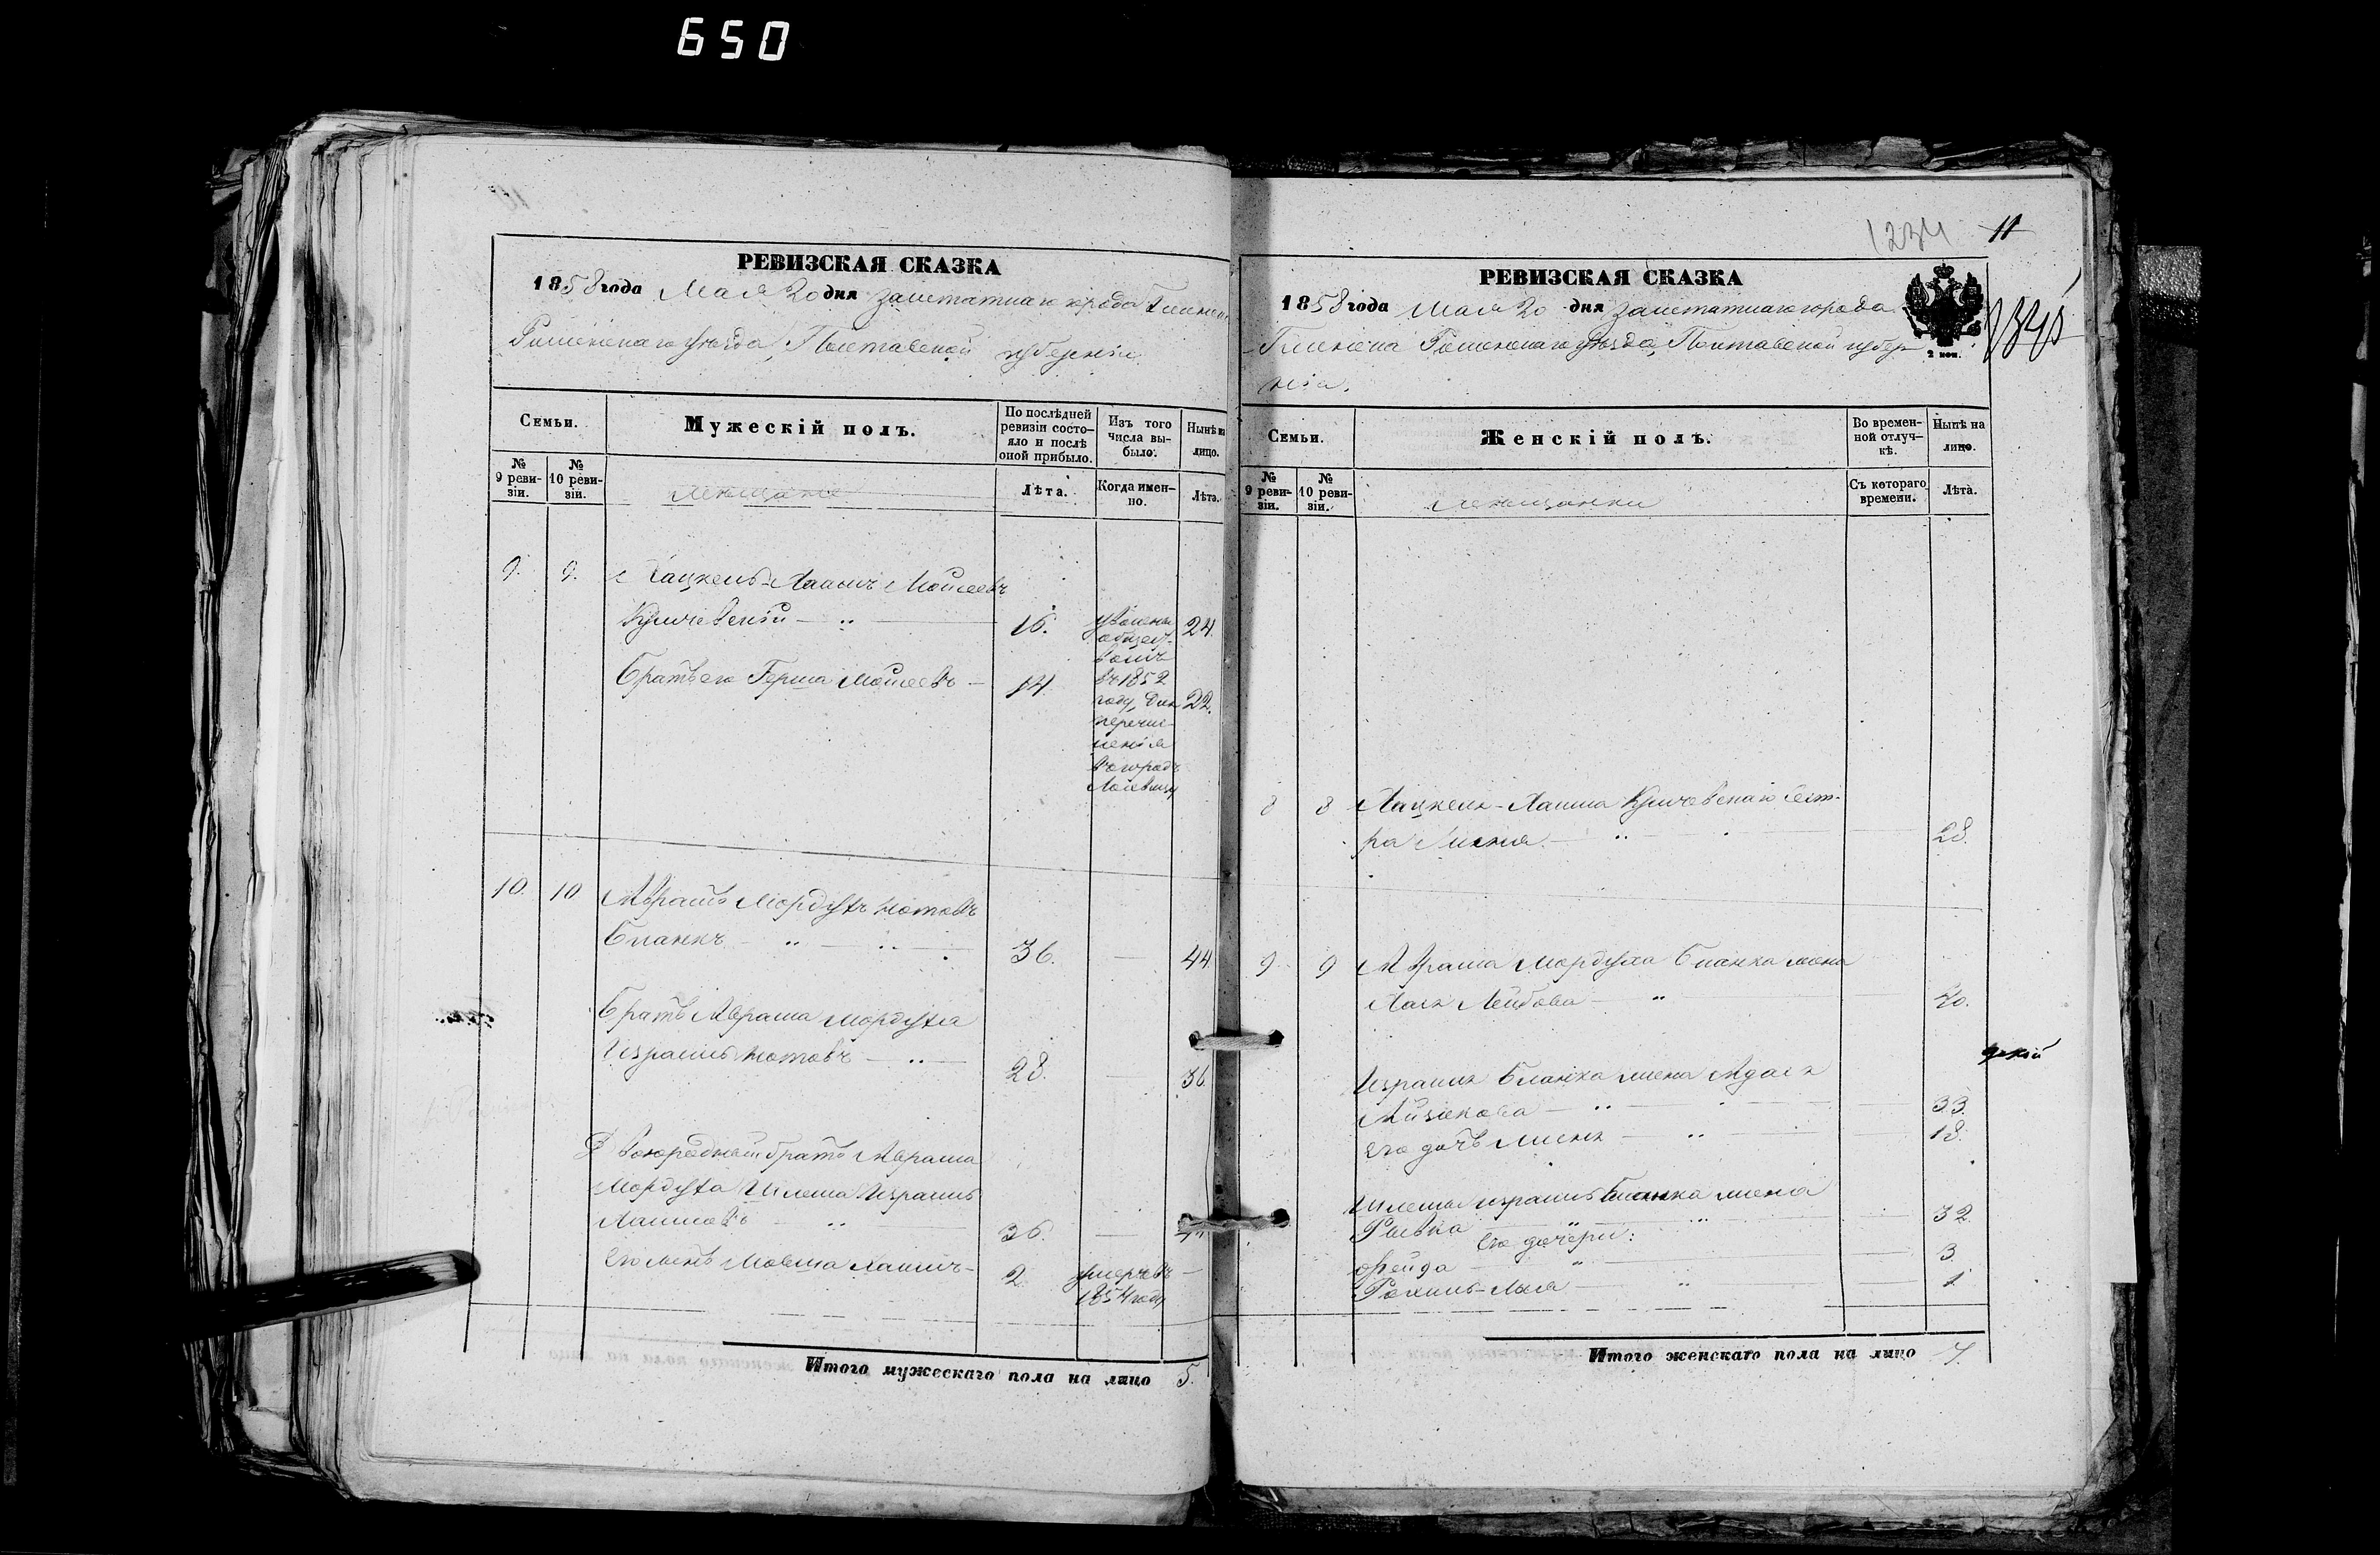 650
РЕВИЗСКАЯ СКАЗКА
1858 года Мая 20 дня заштатнаго города Глинска
Роменскаго уѣзда, Полтавской губерніи.
Семьи.
Мужескій полъ.
По послѣдней ревизіи состояло и послѣ оной прибыло.
Изъ того числа выбыло.
Нынѣ на лицо.
№ 9 ревизіи.
№ 10 ревизіи.
мѣщане
Лѣта.
Когда именно.
Лѣта.
9. 9. Хацкель-Хаимъ Мошеевъ
Кричевскій 16. 24.
уволены
общест-
вомъ
въ 1852
году, для
перечис-
ленія
въ городъ
Братъ его Герша Мошеевъ 14 22.
10. 10 Аврамъ Мордухъ Нотовъ
Бланкъ 36. 44
Братъ Аврама Мордуха
Израиль Нотовъ 28. 36
Двоюродный братъ Аврама
Мордуха Шлема Израиль
Хаимовъ 36.
Его сынъ Мовша Хаимъ 2. умеръ въ
1854 году
Итого мужескаго пола на лицо 5.
1234 11
РЕВИЗСКАЯ СКАЗКА
1858 года Мая 20 дня заштатнаго города
Глинска Роменскаго уѣзда, Полтавской губер-
ніи.
2 коп.
Семьи.
Женскій полъ.
Во временной отлучкѣ.
Нынѣ на лицо.
№ 9 ревизіи.
№ 10 ревизіи.
мѣщанки
Съ котораго времени.
Лѣта.
8 8 Хацкеля-Хаима Кричевскаго сест-
ра 28.
9 9 Аврама Мордуха Бланка жена
Хая Лейбова 40.
Израиля Бланка жена Адаля
Айзикова 33.
его дочь 18.
Шлемы Израиль Бланка жена
Рывка 32
Его дочери:
Фейда 3.
1.
Итого женскаго пола на лицо 7.